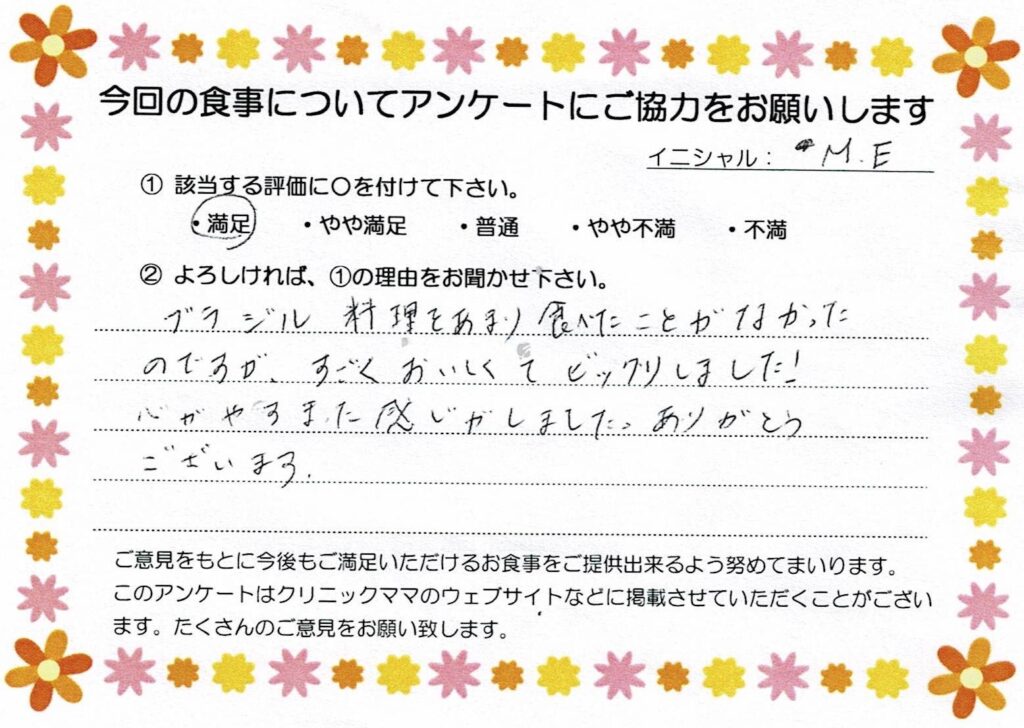 今回の食事についてアンケートにご協力をお願いします
イニシャル： M.E
① 該当する評価に〇を付けて下さい。
・満足 ・やや満足 ・普通 ・やや不満 ・不満
② よろしければ、①の理由をお聞かせ下さい。
ブラジル 料理をあまり食べたことがなかった
のですが、すごくおいしくてビックリしました!
心がやすまった感じがしました。ありがとう
ございます.
ご意見をもとに今後もご満足いただけるお食事をご提供出来るよう努めてまいります。
このアンケートはクリニックママのウェブサイトなどに掲載させていただくことがござい
ます。たくさんのご意見をお願い致します。